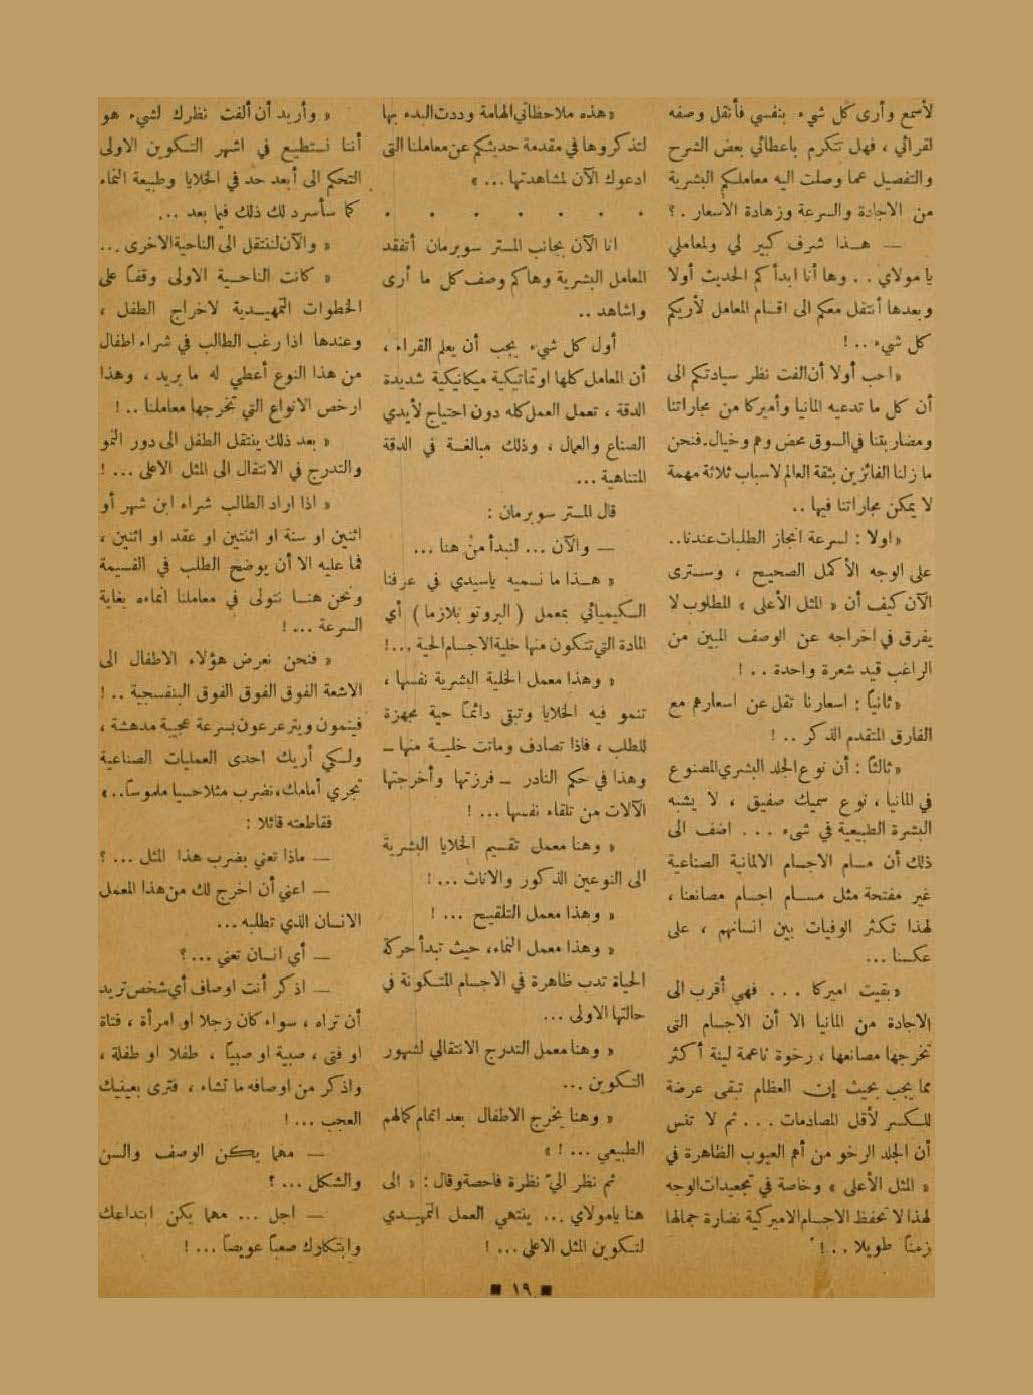 لأسمع وأرى كل شيء بنفسي فأنقل وصفه
لقرائي ، فهل تتكرم باعطائي بعض الشرح
والتفصيل عما وصلت اليه معاملكم البشرية
من الاجادة والسرعة وزهادة الاسعار . ؟
— هـذا شرف كبير لي ولمعاملي
يامولاي . . وها أنا ابدأكم الحديث أولا
وبعدها أنتقل معكم الى اقسام المعامل لأريكم
كل شيء . . !
«احب أولا أن الفت نظر سيادتكم الى
أن كل ما تدعيه المانيا وأميركا من مجاراتنا
ومضاربتنا في السوق محض وهم وخيال. فنحن
مازلنا الفائزين بثقة العالم لاسباب ثلاثة مهمة
لا يمكن مجاراتنا فيها ..
«اولا : لسرعة انجاز الطلبات عندنا..
على الوجه الأكمل الصحيح ، وسـترى
الآن كيف أن « المثل الأعلى » المطلوب لا
يفرق في اخراجه عن الوصف المبين من
الراغب قيد شعرة واحدة . . !
«ثانياً : اسعارنا تقل عن اسعارهم مع
الفارق المتقدم الذكر . . !
«ثالثاً : أن نوع الجلد البشري المصنوع
في المانيا ، نوع سميك صفيق ، لا يشبه
البشرة الطبيعية في شىء . . . اضف الى
ذلك أن مسـام الاجسام الالمانية الصناعية
غير مفتحة مثل مسـام اجسام مصانعنا ،
لهذا تكثر الوفيات بين انسانهم ، على
عكسنا ...
«بقيت اميركا . . . فهي أقرب الى
الاجادة من المانيا الا أن الاجسام التى
تخرجها مصانعها ، رخوة ناعمة لينة أكثر
مما يجب بحيث إن العظام تبقى عرضة
للكسر لأقل المصادمات . . . ثم لا تنس
أن الجلد الرخو من أهم العيوب الظاهرة في
« المثل الأعلى » وخاصة في تجعيدات الوجه
لهذا لا تحفظ الاجسام الاميركية نضارة جمالها
زمناً طويلا . . !
«هذه ملاحظاتي الهامة وددت البدء بها
لتذكروها في مقدمة حديثكم عن معاملنا التى
ادعوك الآن لمشاهدتها ... »
. . . . . . . .
انا الآن بجانب المستر سوبرمان أتفقد
المعامل البشرية وهاكم وصف كل ما أرى
واشاهد ..
أول كل شيء يجب أن يعلم القراء ،
أن المعامل كلها اوتماتيكية ميكانيكية شديدة
الدقة ، تعمل العمل كله دون احتياج لأيدي
الصناع والعمال ، وذلك مبالغـة في الدقة
المتناهية ...
قال المستر سوبرمان :
— والآن ... لنبدأ من هنا ...
« هـذا ما نسميه ياسيدي في عرفنا
الـكيميائي بمعمل ( البروتو بلازما ) أي
المادة التي تتكون منها خلية الاجسـام الحية ...!
« وهذا معمل الخلية البشرية نفسها ،
تنمو فيه الخلايا وتبقى دائماً حية مجهزة
للطلب ، فاذا تصادف وماتت خليـة منها —
وهذا في حكم النادر — فرزتها وأخرجتها
الآلات من تلقاء نفسها ... !
« وهنا معمل تقسيم الخلايا البشرية
الى النوعين الذكور والاناث ... !
« وهذا معمل التلقيح ... !
« وهذا معمل النماء، حيث تبدأ حركة
الحياة تدب ظاهرة في الاجسام المتكونة في
حالتها الاولى ...
« وهنا معمل التدرج الانتقالي لشهور
التكوين ...
« وهنا يخرج الاطفال بعد اتمام كمالهم
الطبيعي ... ! »
ثم نظر اليّ نظرة فاحصة وقال : « الى
هنا يامولاي ... ينتهي العمل التمهيدي
لتكوين المثل الاعلى ... !
« وأريد أن ألفت نظرك لشيء هو
أننا نستطيع في اشهر التكوين الاولى
التحكم الى أبعد حد في الخلايا وطبيعة النماء
كما سأسرد لك ذلك فيما بعد ...
« والآن لننتقل الى الناحية الاخرى . ..
« كانت الناحـية الاولى وقفاً على
الخطوات التمهيـدية لاخراج الطفل ،
وعندها اذا رغب الطالب في شراء اطفال
من هذا النوع أعطي له ما يريد ، وهذا
ارخص الانواع التي تخرجها معاملنا . . !
« بعد ذلك ينتقل الطفل الى دور النمو
والتدرج في الانتقال الى المثل الاعلى ... !
« اذا اراد الطالب شراء ابن شهر أو
اثنين او سنة او اثنتين او عقد او اثنين ،
فما عليه الا أن يوضح الطلب في القسيمة
ونحن هنـا نتولى في معاملنا انماءه بغاية
السرعة ... !
« فنحن نعرض هؤلاء الاطفال الى
الاشعة الفوق الفوق الفوق البنفسجية .. !
فينمون ويترعرعون بسرعة عجيبة مدهشة ،
ولـكي أريك احدى العمليات الصناعية
تجري أمامك، نضرب مثلا حسيا ملموساً..»
فقاطعته قائلا :
— ماذا تعني بضرب هذا المثل ... ؟
— اعني أن اخرج لك من هذا المعمل
الانسان الذي تطلبه ...
— أي انسان تعني ... ؟
— اذكر أنت اوصاف أي شخص تريد
أن تراه ، سواء كان رجلا او امرأة ، فتاة
او فتى ، صبية او صبياً ، طفلا او طفلة ،
واذكر من اوصافه ما تشاء ، فترى بعينيك
العجب ... !
— مهما يكن الوصف والسن
والشكل ... ؟
— اجل ... مهما يكن ابتداعك
وابتكارك صعباً عويصاً ... !
■ ١٩ ■